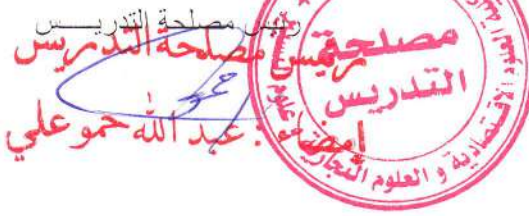 رئيس مصلحة التدريـــس
رئيس مصلحة التدريس
إمضاء : عبد الله حمو علي
مصلحة
التدريس
الاقتصادية و العلوم التجارية